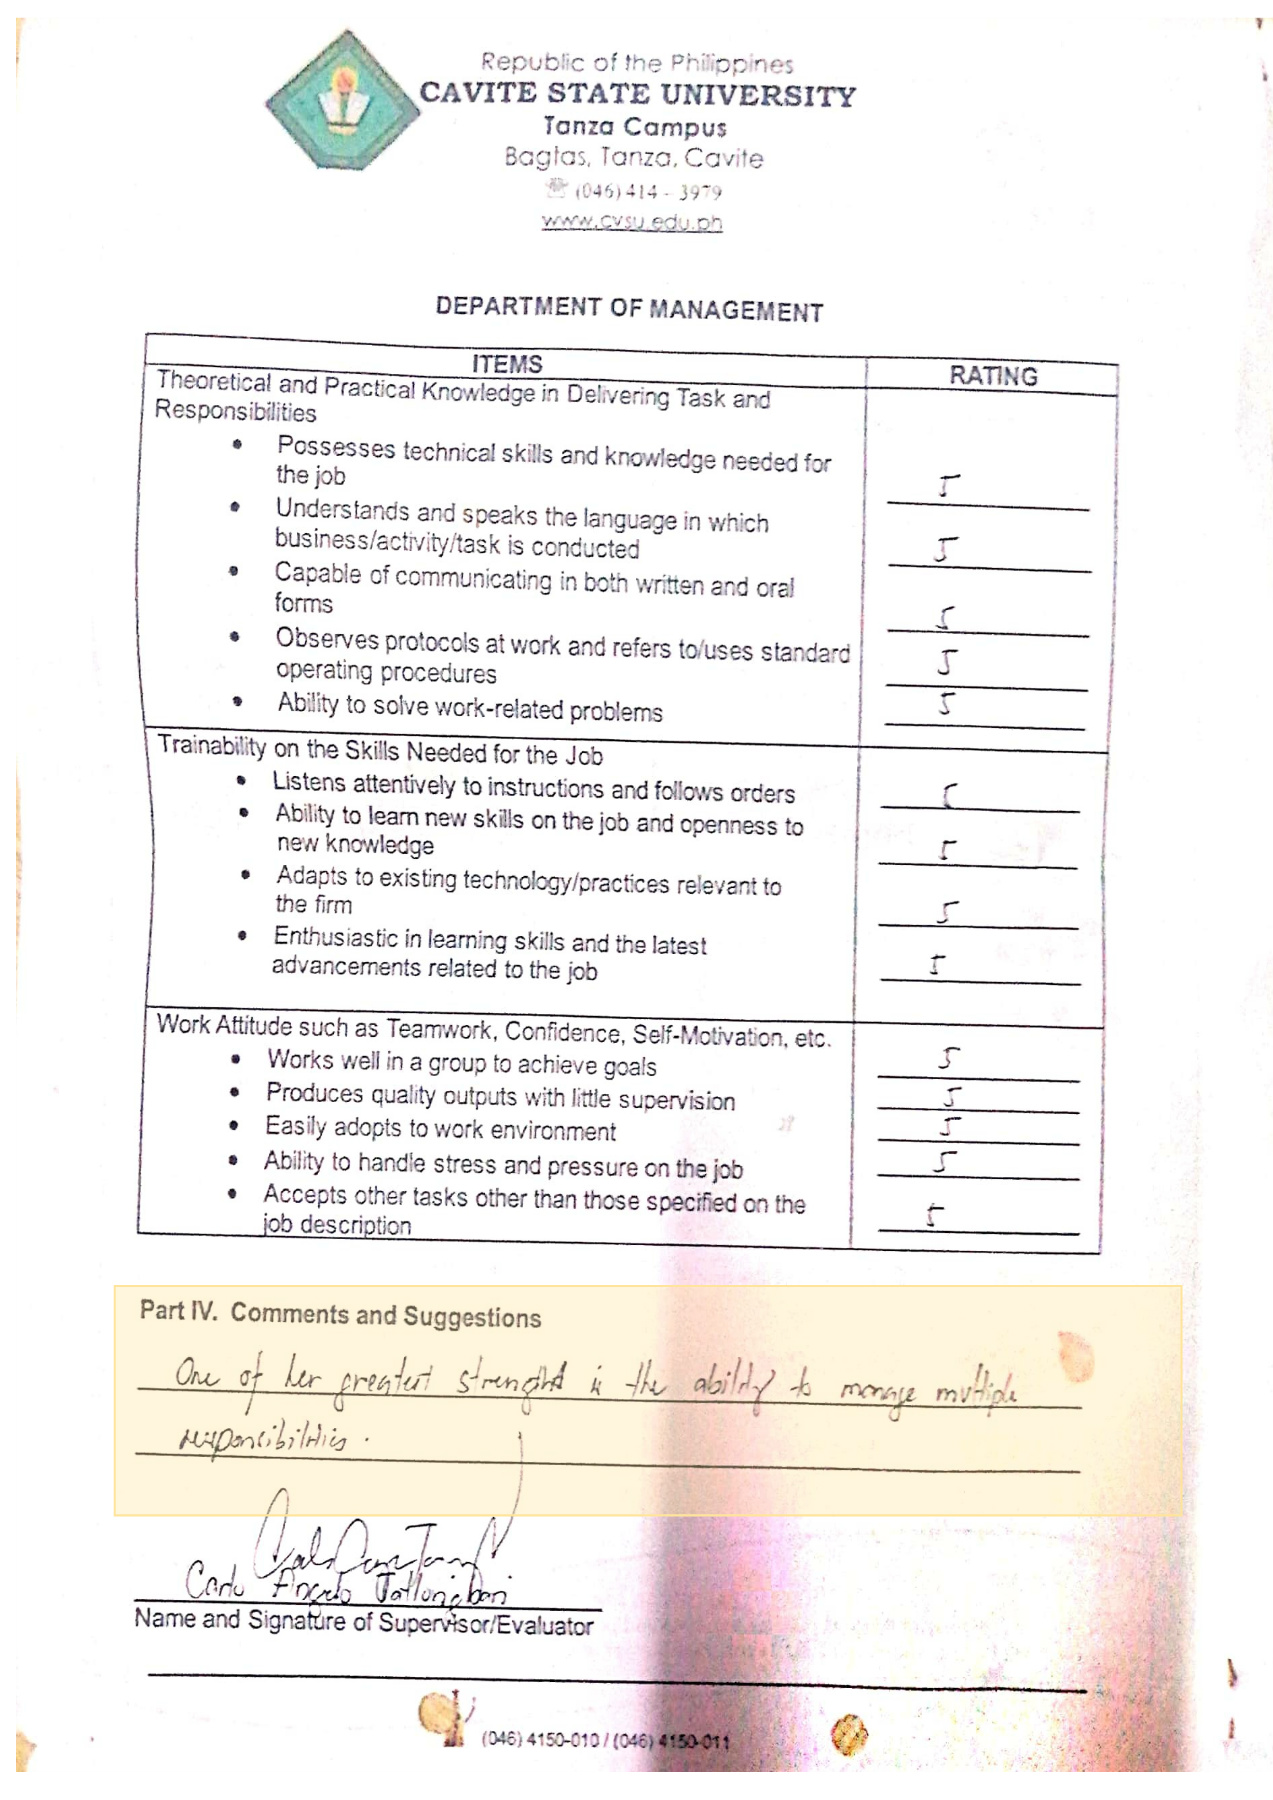 Republic of the Philippines
CAVITE STATE UNIVERSITY
Tanza Campus
Bagtas, Tanza, Cavite
(046) 414 - 3979
www.cvsu.edu.ph
DEPARTMENT OF MANAGEMENT
ITEMS RATING
Theoretical and Practical Knowledge in Delivering Task and
Responsibilities
• Possesses technical skills and knowledge needed for
the job 5
• Understands and speaks the language in which
business/activity/task is conducted 5
• Capable of communicating in both written and oral
forms 5
• Observes protocols at work and refers to/uses standard
operating procedures 5
• Ability to solve work-related problems 5
Trainability on the Skills Needed for the Job
• Listens attentively to instructions and follows orders 5
• Ability to learn new skills on the job and openness to
new knowledge 5
• Adapts to existing technology/practices relevant to
the firm 5
• Enthusiastic in learning skills and the latest
advancements related to the job 5
Work Attitude such as Teamwork, Confidence, Self-Motivation, etc.
• Works well in a group to achieve goals 5
• Produces quality outputs with little supervision 5
• Easily adopts to work environment 5
• Ability to handle stress and pressure on the job 5
• Accepts other tasks other than those specified on the
job description 5
Part IV. Comments and Suggestions
One of her greatest strengths is the ability to manage multiple
responsibilities.
Angelo
Name and Signature of Supervisor/Evaluator
(046) 4150-010 / (046) 4150-011